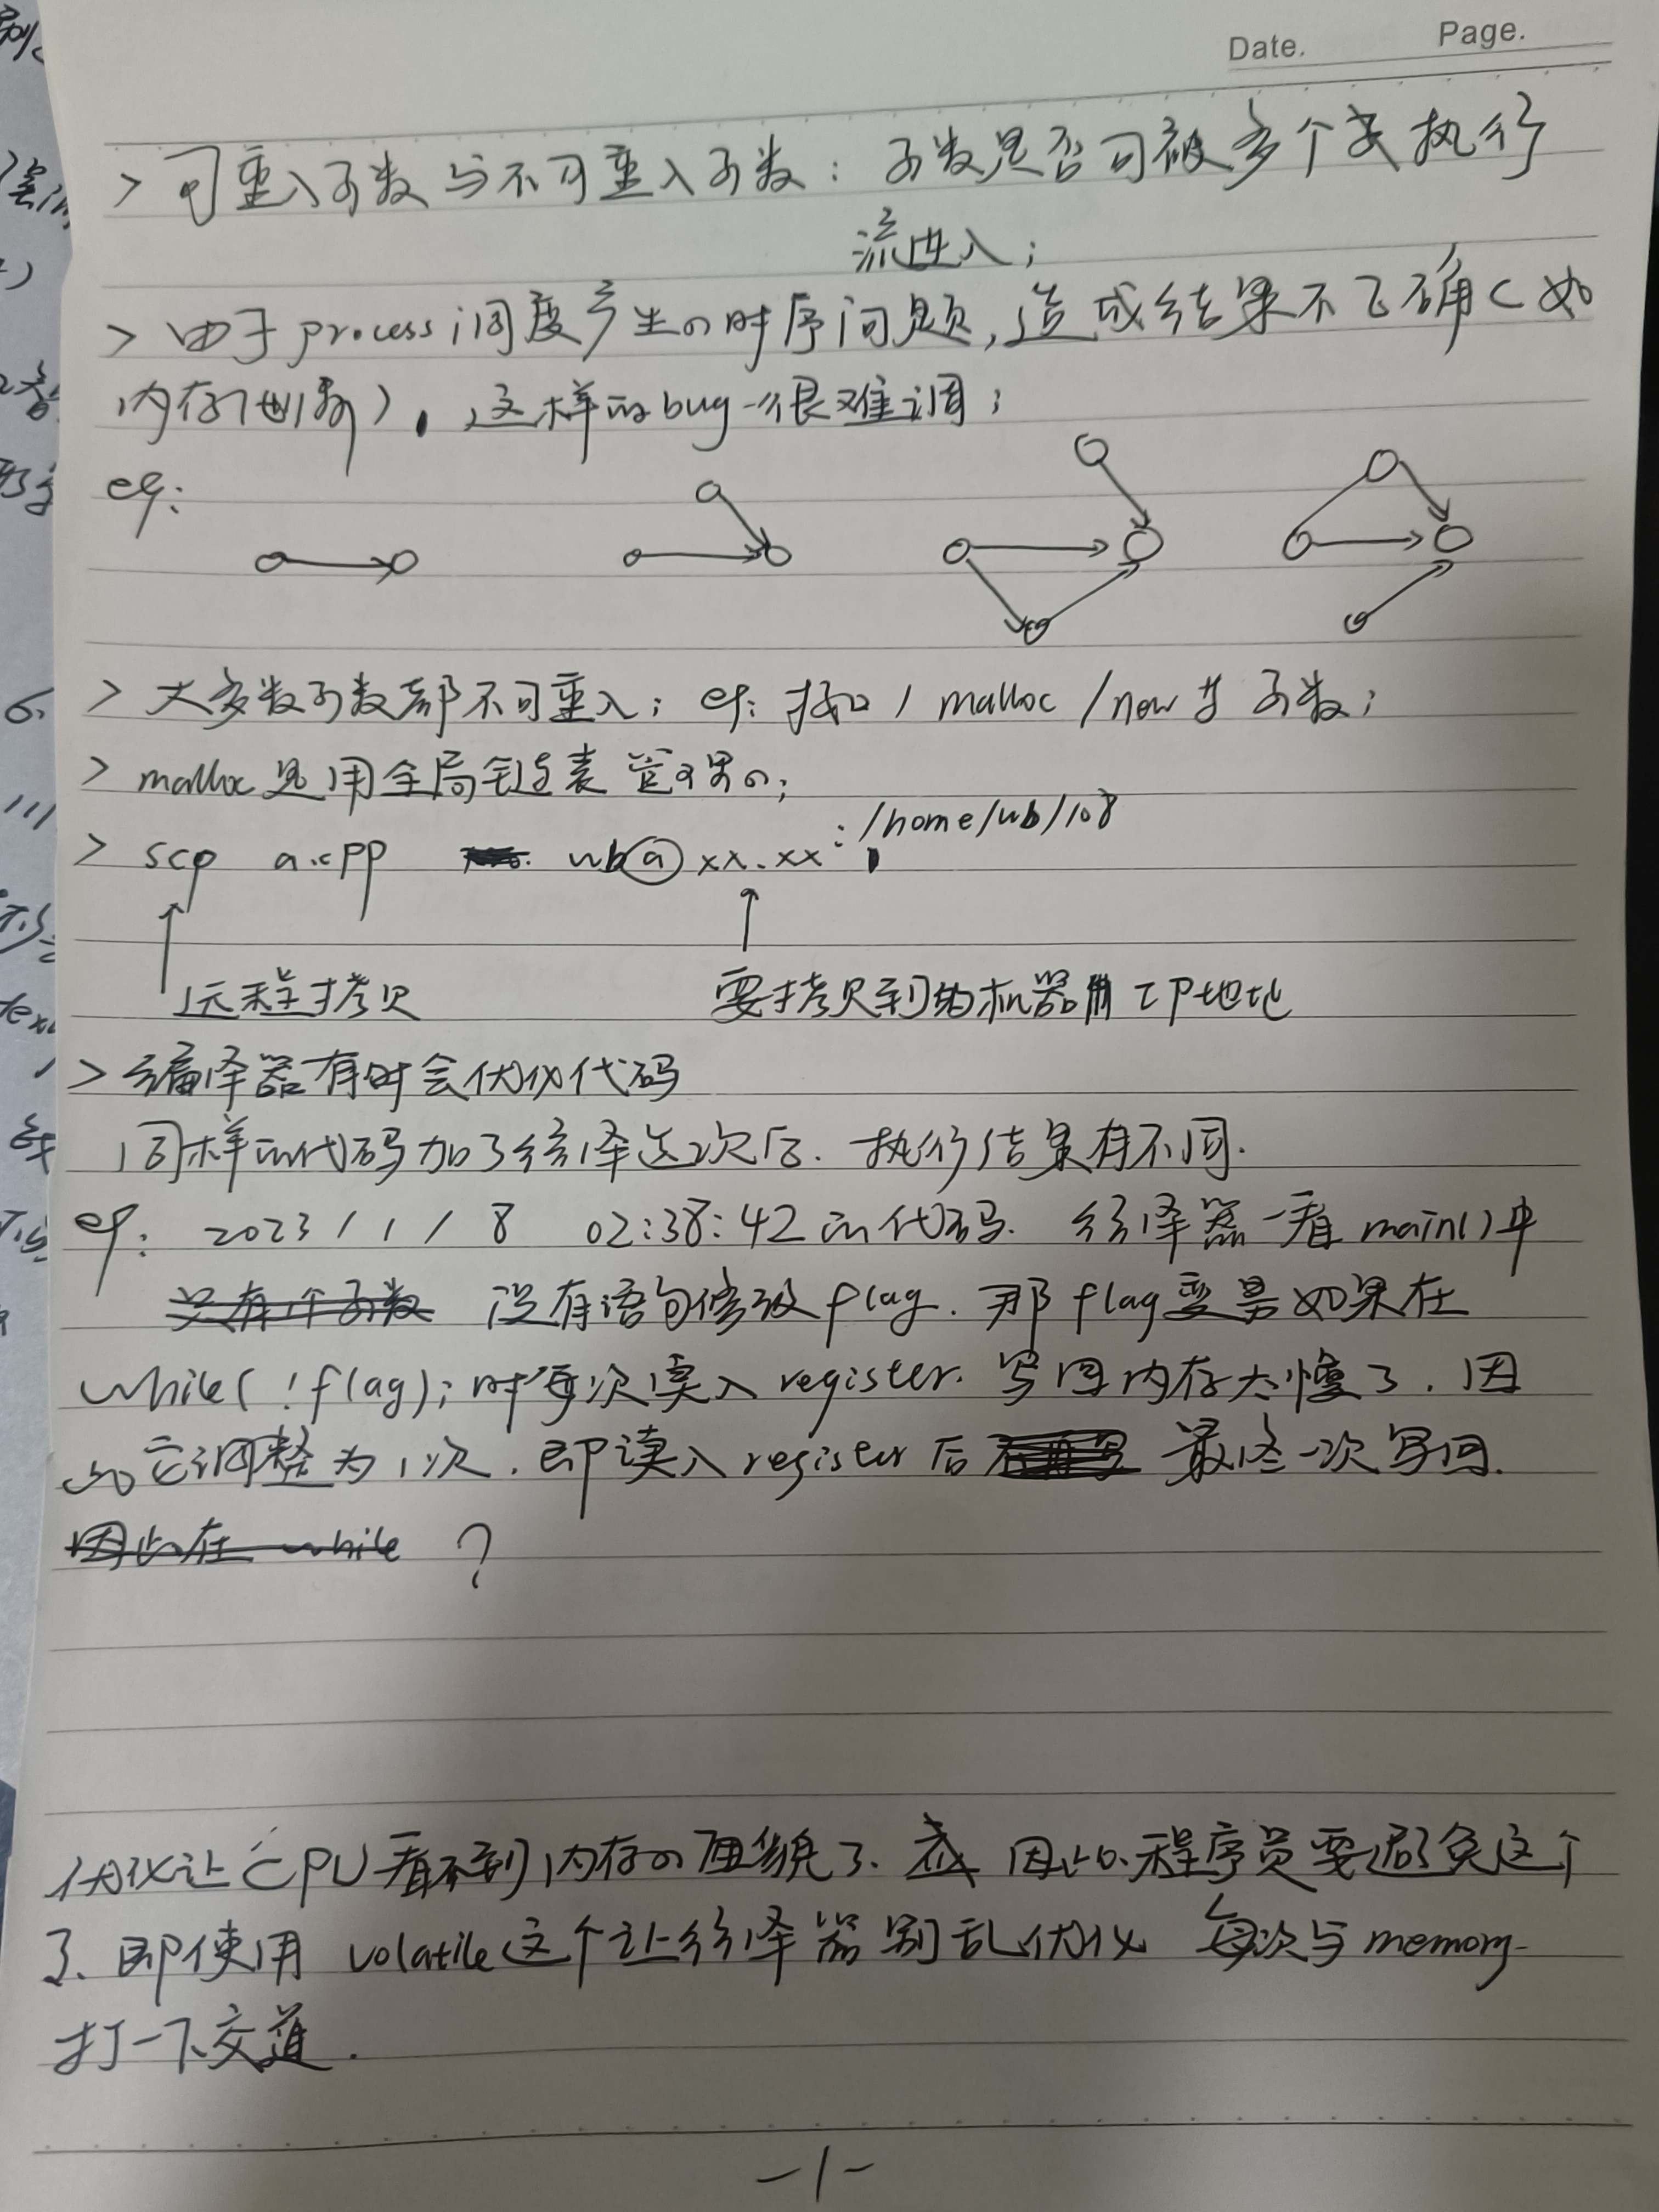 Date. Page.
> 可重入函数与不可重入函数：函数是否可被多个执行
流进入；
> 由于process调度产生的时序问题，造成结果不正确（如
内存泄漏），这样的bug一般很难调；
eg:
> 大多数函数都不可重入；eg: 接口 / malloc / new 等函数；
> malloc是用全局链表管理的；
> scp a.cpp wb@xx.xx:/home/wb/108
远程拷贝 要拷贝到的机器的IP地址
> 编译器有时会优化代码
同样的代码加了编译选项后. 执行结果有不同.
eg: 2023/1/8 02:38:42的代码. 编译器一看main()中
只有个函数 没有语句修改flag. 那flag变量如果在
while(!flag); 时每次读入register. 写回内存太慢了. 因
此它调整为1次. 即读入register后 最终一次写回.
因此在while ?
优化让CPU看不到内存的面貌了. 因此程序员要避免这个
了. 即使用volatile这个让编译器别乱优化 每次与memory
打一下交道.
-1-